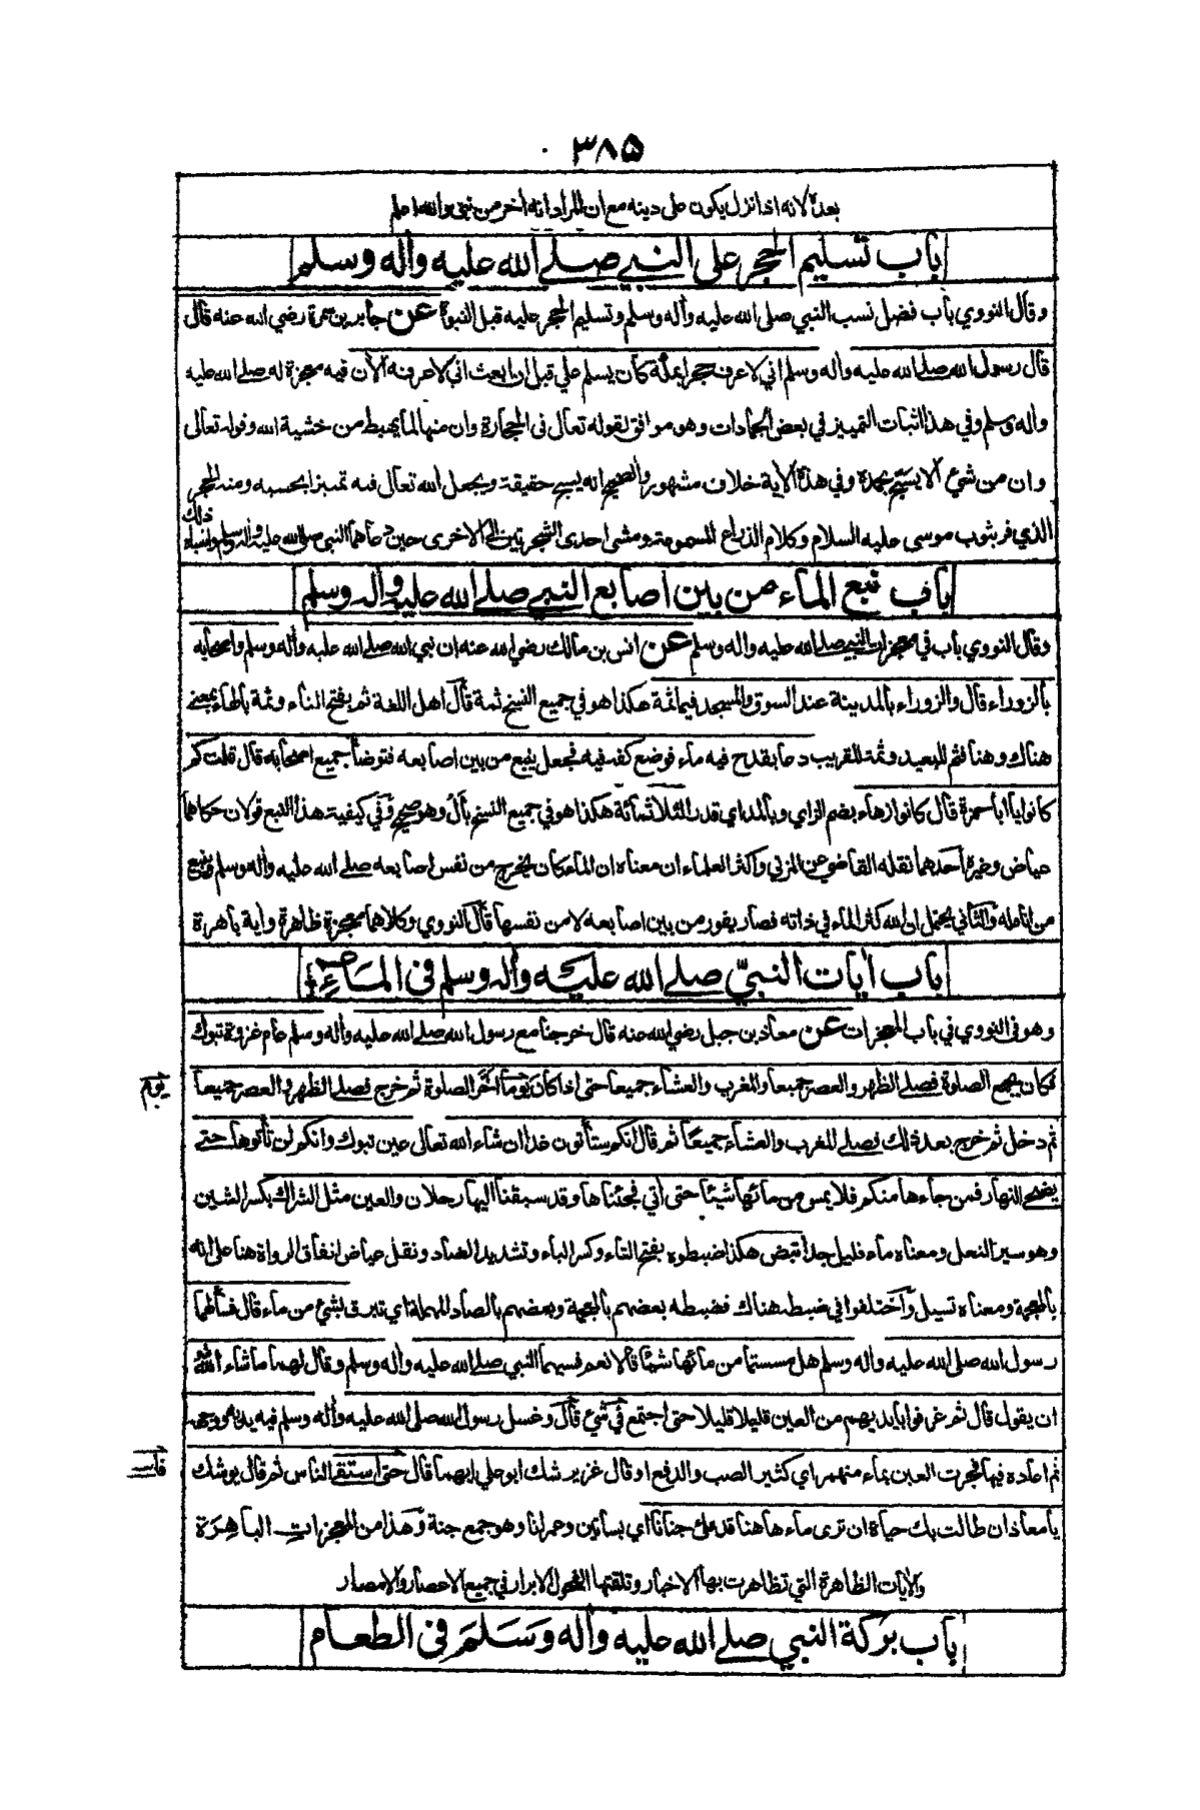 ۳۸۵
بعده لانه اذا نزل يكون على دينه مع ان المراد انه اخر من نبي والله اعلم
باب تسليم الحجر على النبي صلى الله عليه وأله وسلم
وقال النووي باب فضل نسب النبي صلى الله عليه وأله وسلم وتسليم الحجر عليه قبل النبوة عن جابر بن سمرة رضي الله عنه قال
قال رسول الله صلى الله عليه واله وسلم اني لاعرف حجرا بمكة كان يسلم علي قبل ان ابعث اني لاعرفه الأن فيه معجزة له صلى الله عليه
واله وسلم وفي هذا اثبات التمييز في بعض الجمادات وهو موافق لقوله تعالى في الحجارة وان منها لما يهبط من خشية الله وقوله تعالى
وان من شيء الا يسبح بحمده وفي هذه الأية خلاف مشهور والصحيح انه يسبح حقيقة ويجعل الله تعالى فيه تميزا بحسبه ومنه الحجر
الذي فر بثوب موسى عليه السلام وكلام الذراع المسمومة ومشي احدى الشجرتين الى الاخرى حين دعاهما النبي صلى الله عليه واله وسلم واشباه ذلك
باب نبع الماء من بين اصابع النبي صلى الله عليه واله وسلم
وقال النووي باب في معجزات النبي صلى الله عليه واله وسلم عن انس بن مالك رضي الله عنه ان نبي الله صلى الله عليه وأله وسلم واصحابه
بالزوراء قال والزوراء بالمدينة عند السوق والمسجد فيما ثمة هكذا هو في جميع النسخ ثمة قال اهل اللغة ثم بفتح الثاء وثمة بالهاء بمعنى
هناك وهنا فثم للبعيد وثمة للقريب دعا بقدح فيه ماء فوضع كفه فيه فجعل ينبع من بين اصابعه فتوضأ جميع اصحابه قال قلت كم
كانوا يا أبا حمزة قال كانوا زهاء بضم الزاي وبالمد اي قدر الثلاثمائة هكذا هو في جميع النسخ بأل وهو صحيح وفي كيفية هذا النبع قولان حكاهما
عياض وغيره أحدهما نقله القاضي عن المزني وأكثر العلماء ان معناه ان الماء كان يخرج من نفس اصابعه صلى الله عليه وأله وسلم وينبع
من انامله والثاني يحتمل ان الله كثر الماء في ذاته فصار يفور من بين اصابعه لا من نفسها قال النووي وكلاهما معجزة ظاهرة وأية باهرة
باب أيات النبيّ صلى الله عليه وأله وسلم في الماء
وهو في النووي في باب المعجزات عن معاذ بن جبل رضي الله عنه قال خرجنا مع رسول الله صلى الله عليه وأله وسلم عام غزوة تبوك
فكان يجمع الصلوة فصلى الظهر والعصر جميعا والمغرب والعشاء جميعا حتى اذا كان يوما أخر الصلوة ثم خرج فصلى الظهر والعصر جميعا
يوم
ثم دخل ثم خرج بعد ذلك فصلى المغرب والعشاء جميعا ثم قال انكم ستأتون غدا ان شاء الله تعالى عين تبوك وانكم لن تأتوها حتى
يضحى النهار فمن جاءها منكم فلا يمس من مائها شيئا حتى اتي فجئناها وقد سبقنا اليها رجلان والعين مثل الشراك بكسر الشين
وهو سير النعل ومعناه ماء قليل جدا تبض هكذا ضبطوه بفتح التاء وكسر الباء وتشديد الضاد ونقل عياض اتفاق الرواة هنا على انه
بالمعجمة ومعناه تسيل وأختلفوا في ضبطه هناك فضبطه بعضهم بالمعجمة وبعضهم بالصاد المهملة اي تبرق بشيء من ماء قال فسألهما
رسول الله صلى الله عليه واله وسلم هل مسستما من مائها شيئا قالا نعم فسبهما النبي صلى الله عليه واله وسلم وقال لهما ما شاء الله
ان يقول قال ثم غرفوا بأيديهم من العين قليلا قليلا حتى اجتمع في شيء قال وغسل رسول الله صلى الله عليه واله وسلم فيه يديه ووجهه
ثم اعاده فيها فجرت العين بماء منهمر اي كثير الصب والدفع او قال غزير شك ابو علي ايهما قال حتى استقى الناس ثم قال يوشك
فاسـ
يا معاذ ان طالت بك حياة ان ترى ماءها هنا قد ملئ جنانا اي بساتين وعمرانا وهو جمع جنة وهذا من المعجزات الباهرة
والايات الظاهرة التي تظاهرت بها الاخبار وتلقتها الفحول الابرار في جميع الاعصار والامصار
باب بركة النبي صلى الله عليه وأله وسلم في الطعام